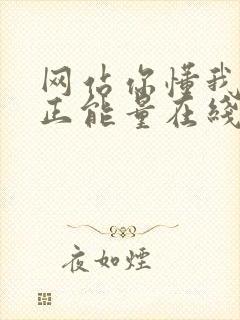 网站你懂我
正能量在线
夜如煙